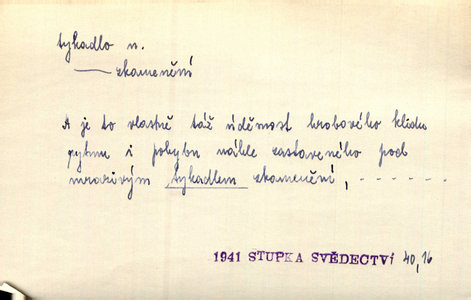 tykadlo n.
—— zkamenění
A je to vlastně táž úděsnost hrobového klidu
rytmu i pohybu náhle zastaveného pod
mrazivým tykadlem zkamenění, - - - - - - -
1941 STUPKA SVĚDECTVÍ 40,16